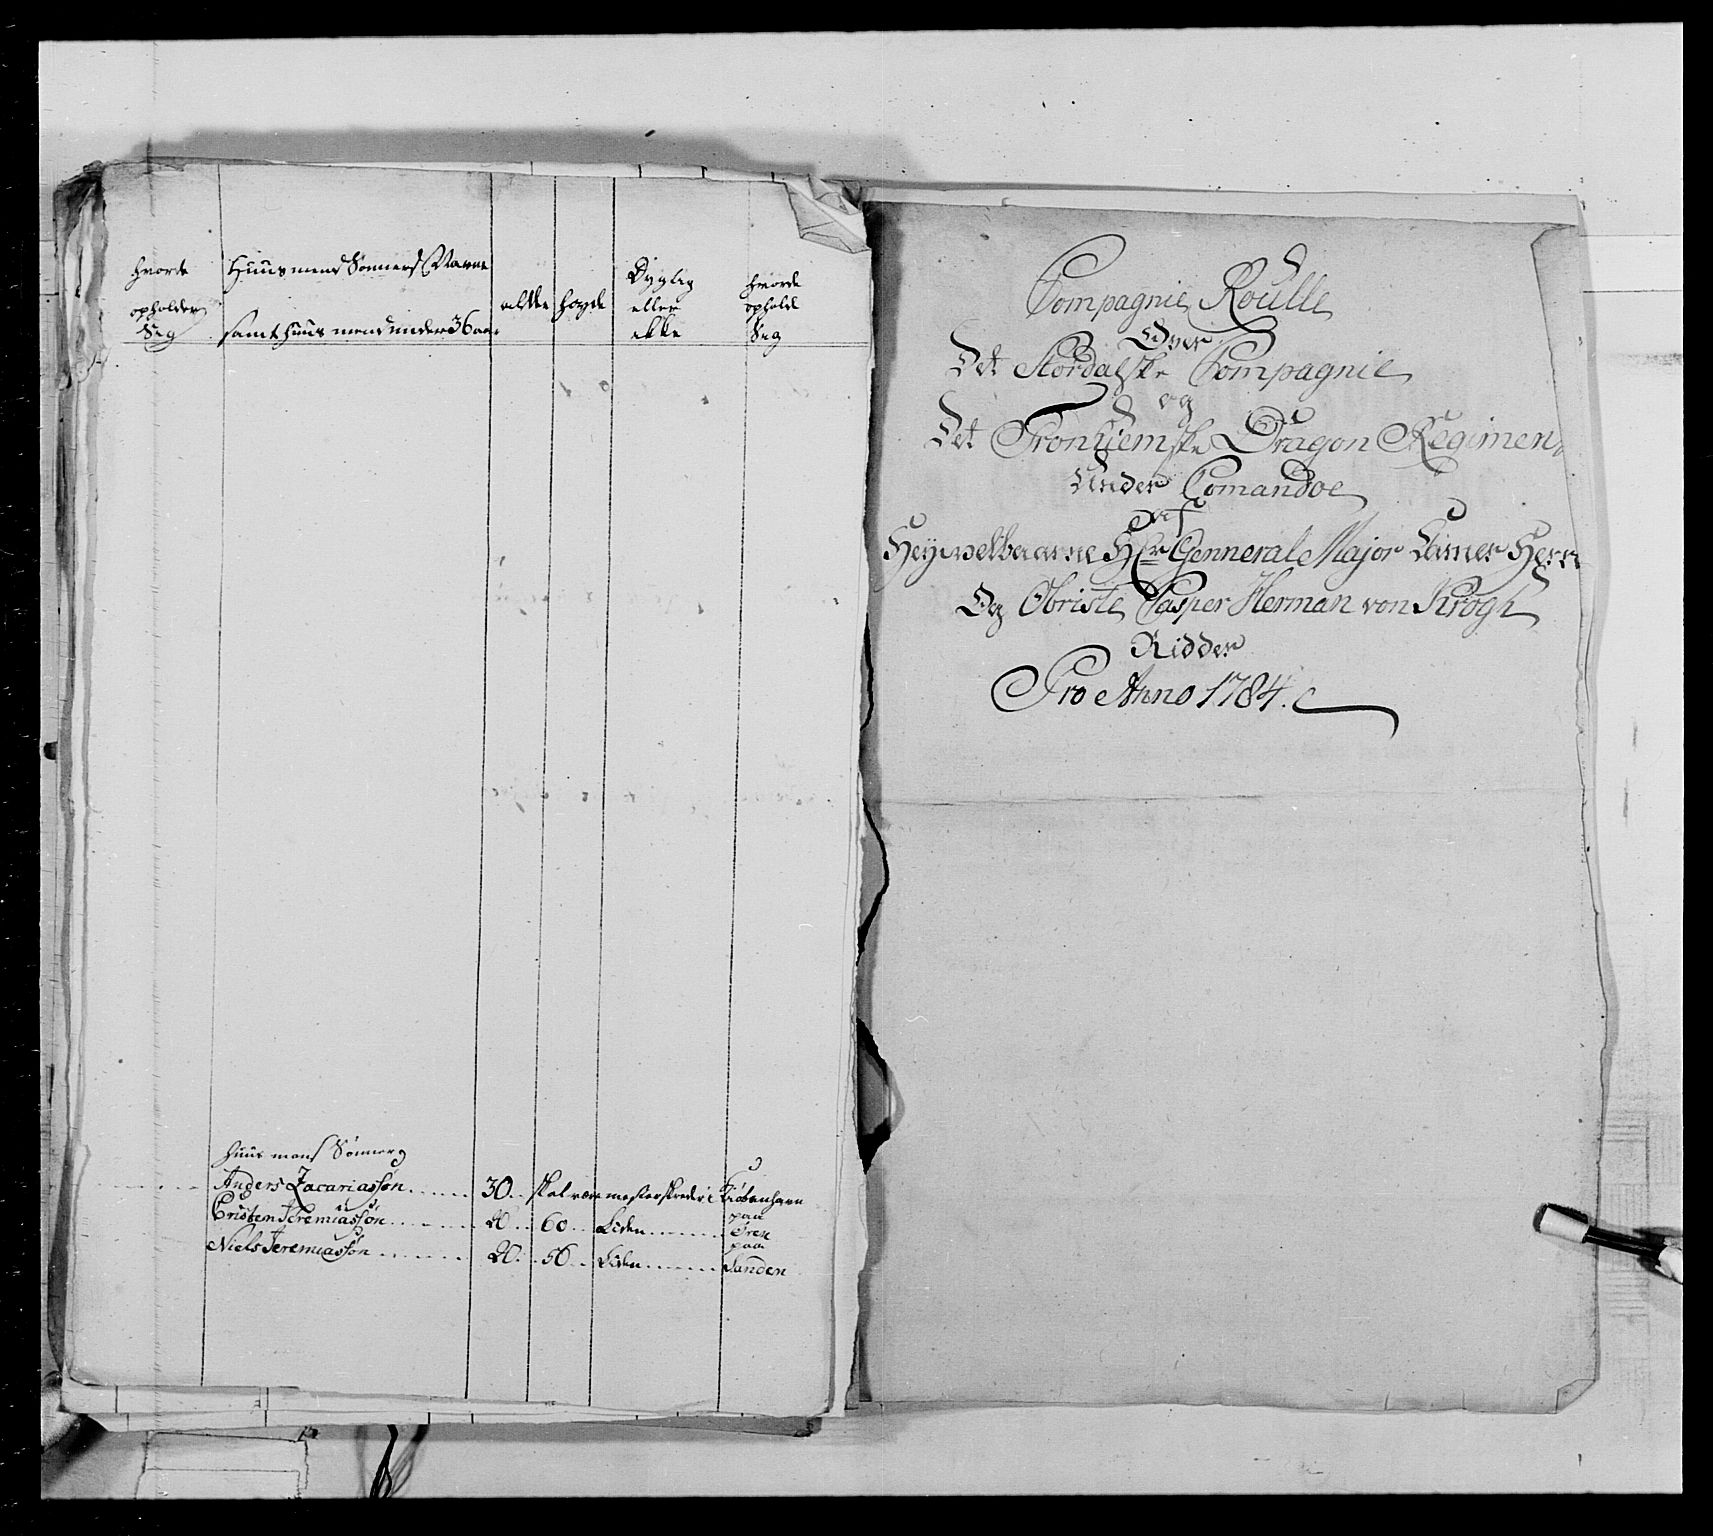 hvorde
opholder
Seg
Huusmends Sønners Navne
samt huus mend under 36 aar
alder
høyde
Dygtig
eller
ikke
hvorde
ophold
Seg
huus mens Sønner
Anders Zacariassøn 30 skal være mester skreder i Kiøbenhavn
Cristen Jeremiassøn 20 60 Liden paa Øren
Niels Jeremiassøn 20 56 Liden paa Sanden
Compagnie Roulle
Over
Det Stordalske Compagnie
og
Det Tronhiemske Dragon Regimen
Under Comandoe
af
Høyvelbaarne Hr Genneral Major Camer Herr
Og Obriste Casper Herman von Krogh
Ridder
Pro Anno 1784.